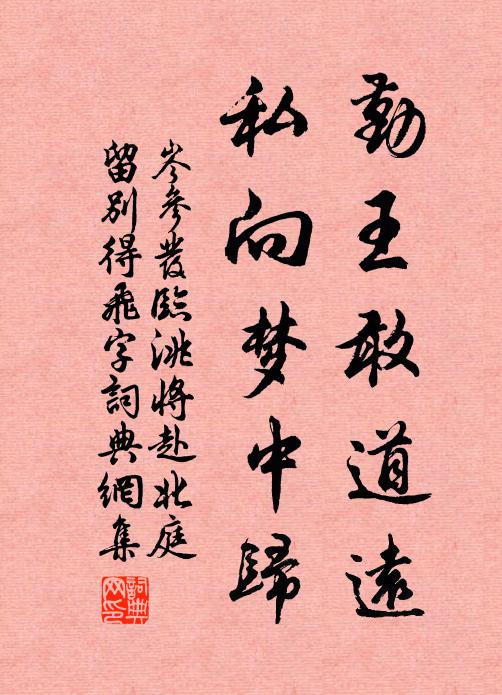 勤王敢道遠
私向梦中歸
岑參發臨洮將赴北庭
留別得飛字詞典網集
詞典网印